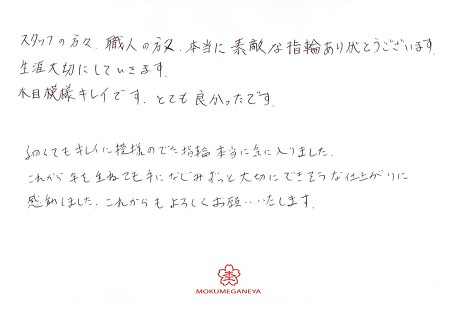 スタッフの方々、職人の方々、本当に素敵な指輪ありがとうございます。
生涯大切にしていきます。
木目模様キレイです。とても良かったです。
細くてもキレイに模様のでた指輪本当に気に入りました。
これから年を重ねても手になじみずっと大切にできそうな仕上がりに
感動しました。これからもよろしくお願いいたします。
MOKUMEGANEYA